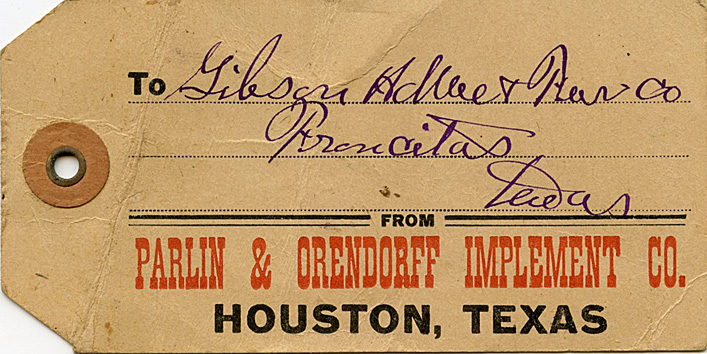 To Gibson Hdwe & Fur Co
Francitas
Texas
FROM
PARLIN & ORENDORFF IMPLEMENT CO.
HOUSTON, TEXAS